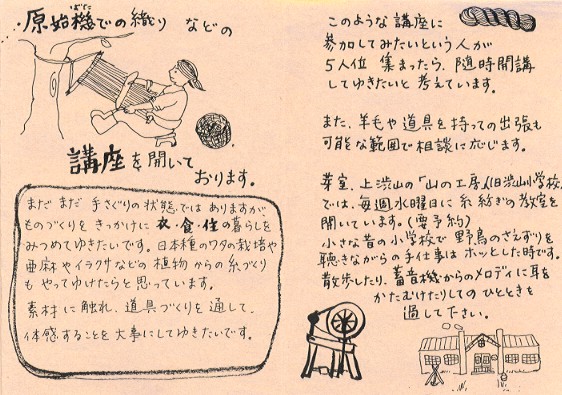 原始機での織り などの
ばた
講座を開いて
おります。
まだ まだ 手さぐりの状態では ありますが
ものづくりを きっかけに 衣・食・住の暮らしを
みつめてゆきたいです。日本種のワタの栽培や
亜麻やイラクサなどの 植物 からの糸づくり
も やってゆけたらと思っています。
素材に触れ、道具づくりを通して、
体感することを大事にしてゆきたいです。
このような 講座に
参加してみたいという人が
5人位 集まったら、随時開講
してゆきたいと 考えています。
また、羊毛や道具を持っての出張も
可能な範囲で相談に応じます。
芽室、上渋山の「山の工房」(旧渋山小学校)
では、毎週水曜日に 糸紡ぎの教室を
開いています。(要予約)
小さな昔の小学校で 野鳥のさえずりを
聴きながらの手仕事は ホッとした時です。
散歩したり、蓄音機からのメロディに耳を
かたむけたりしての ひとときを
過して下さい。